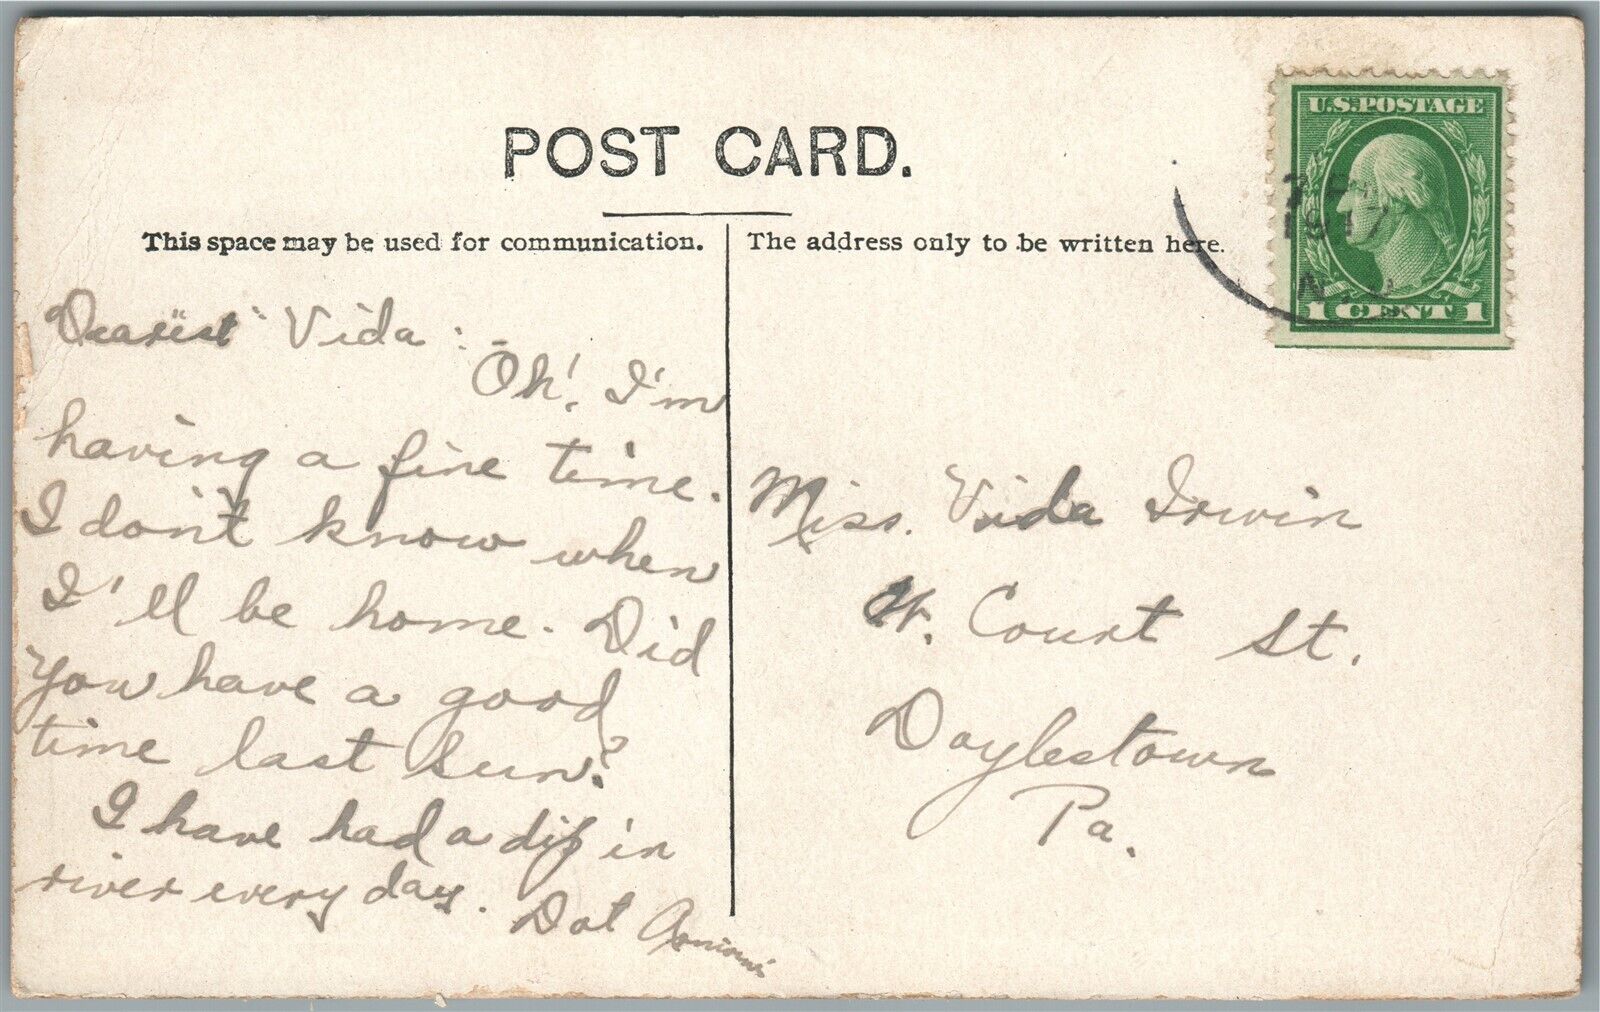 POST CARD.
This space may be used for communication.
The address only to be written here.
U.S. POSTAGE
1 CENT 1
1917
N.
"Dearest" Vida : -
Oh! I'm
having a fine time.
I don't know when
I'll be home. Did
you have a good
time last Sun?
I have had a dip in
river every day.
Dot
Miss. Vida Irwin
W. Court St.
Doylestown
Pa.